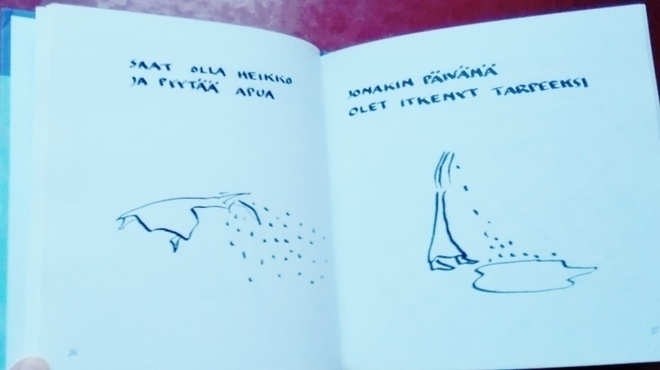 SAAT OLLA HEIKKO
JA PYYTÄÄ APUA
JONAKIN PÄIVÄNÄ
OLET ITKENYT TARPEEKSI
26
27